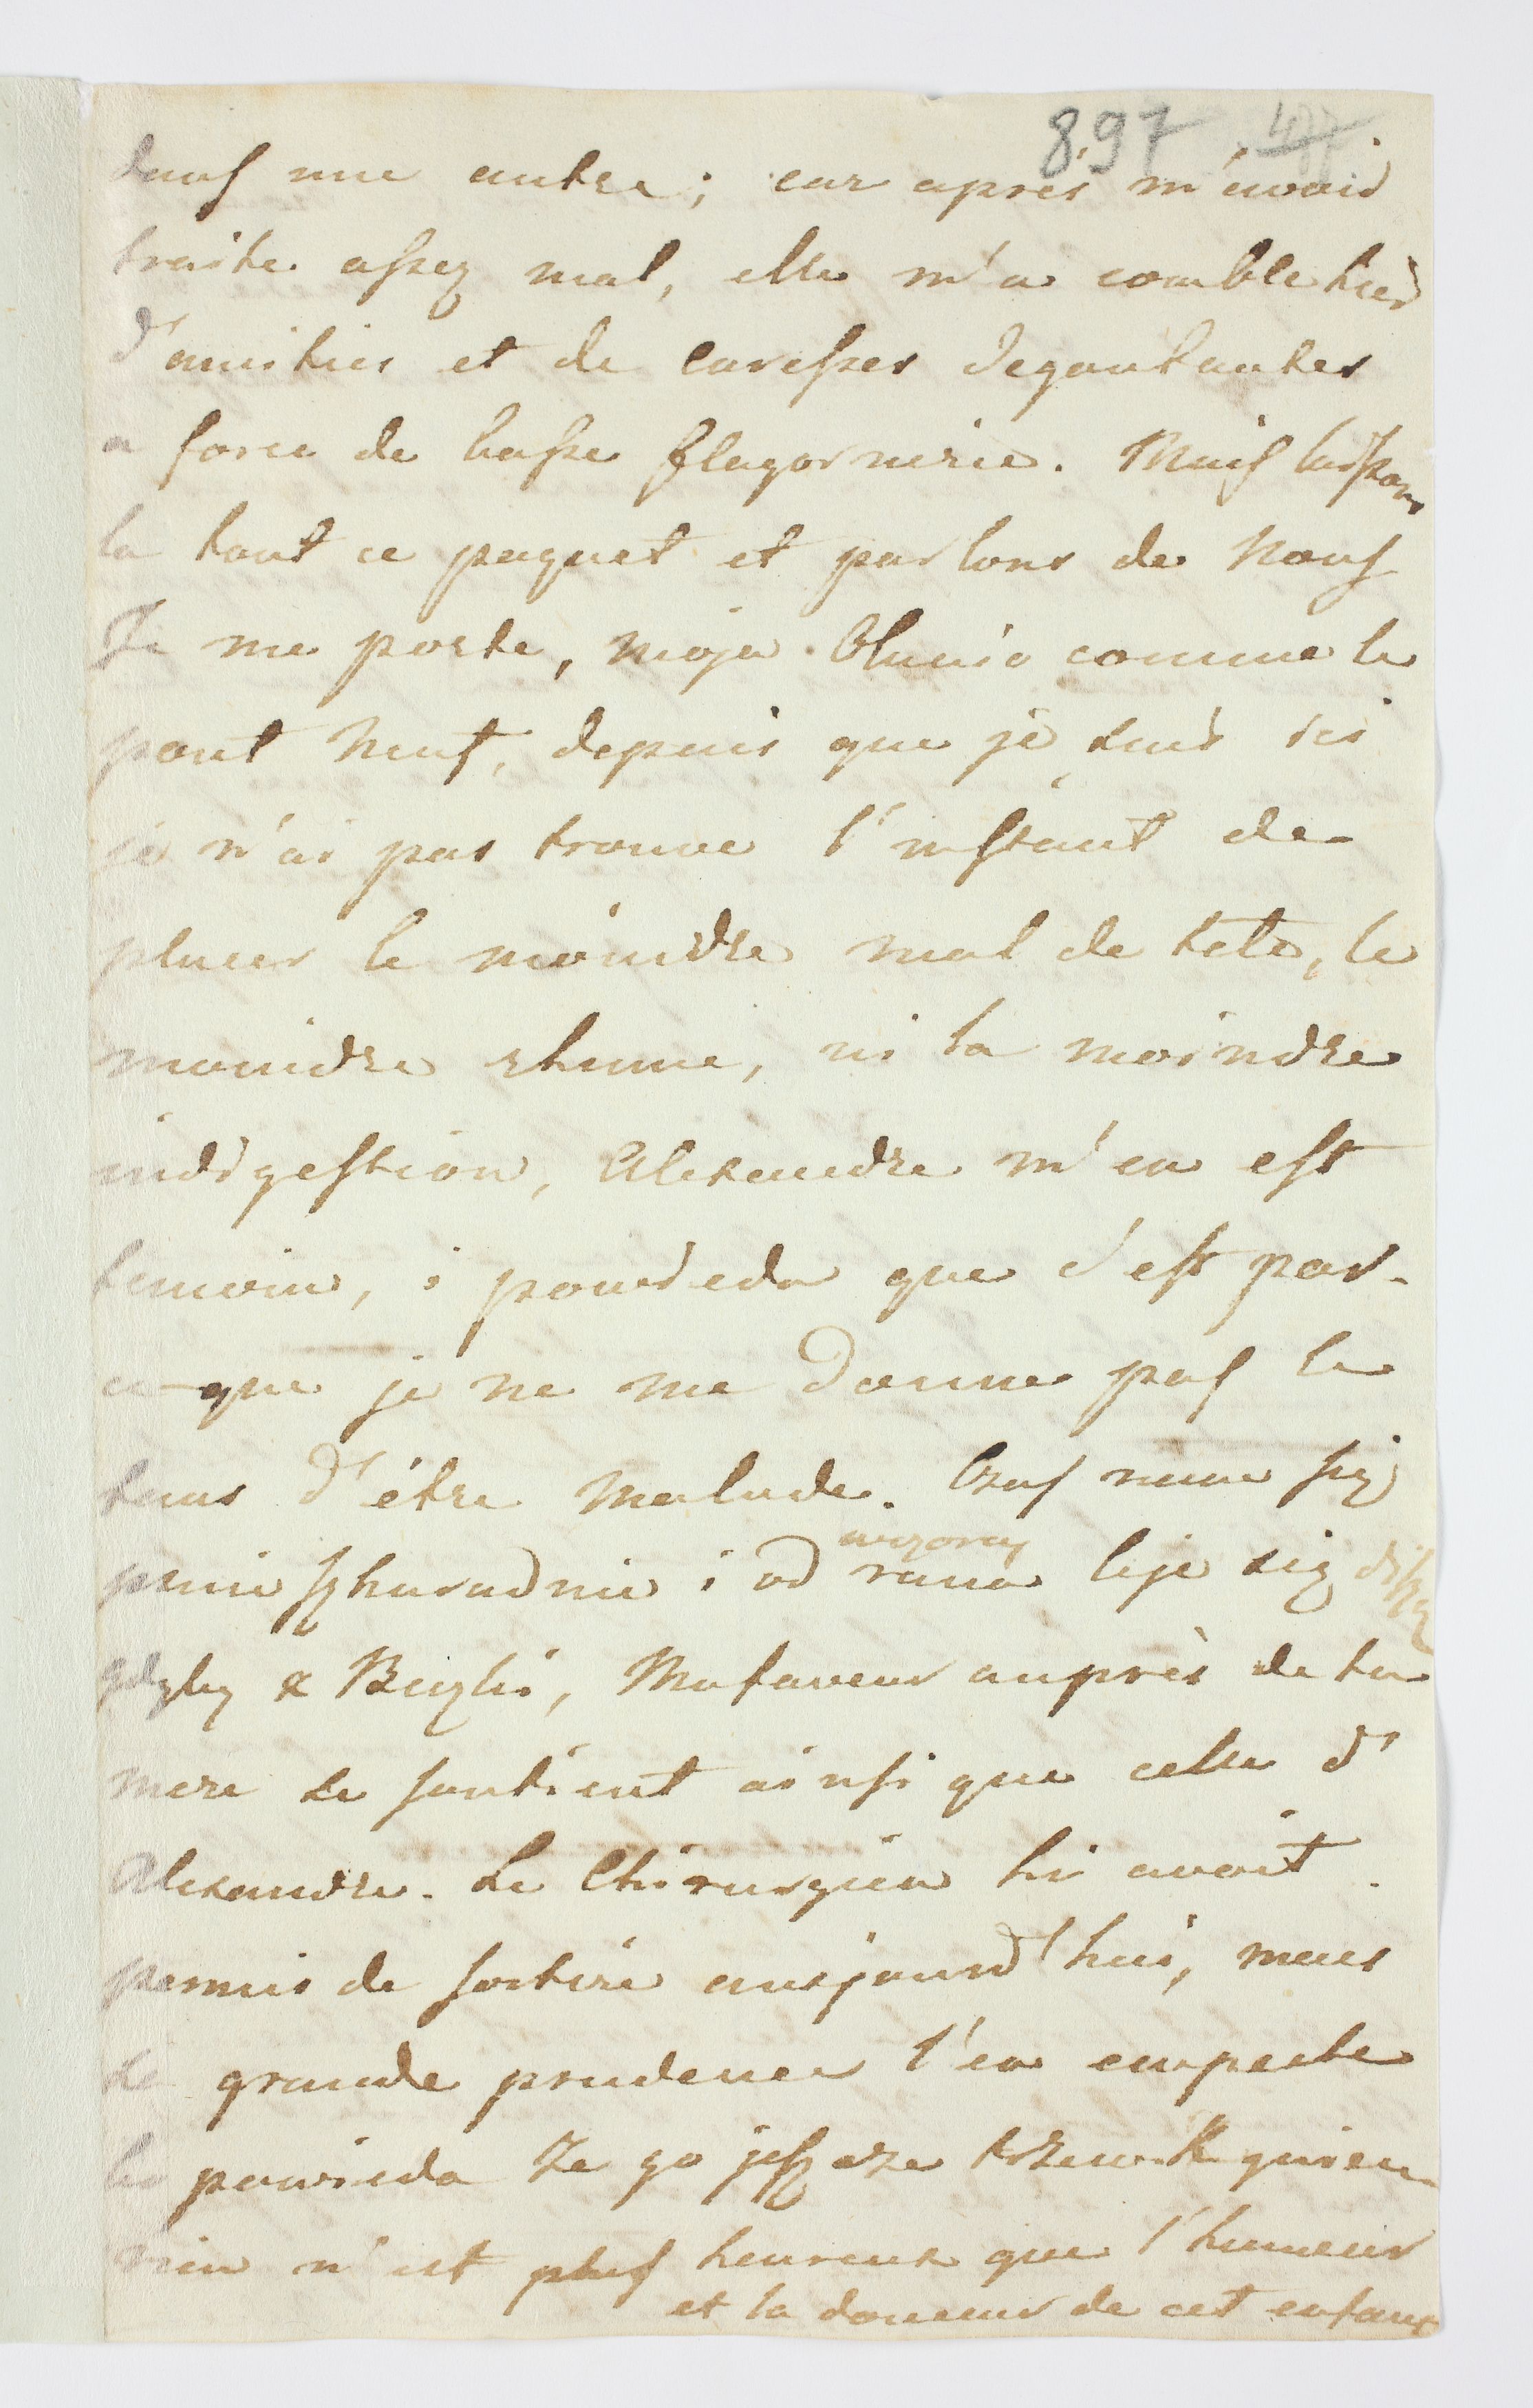 897
dans une autre; car après m'avoir
traite assez mal, elle m'a comble hier
d'amities et de caresses degoutantes
a force de basse flagornerie. Mais laissons
la tout ce paquet et parlons de Nous
Je me porte, moja Olunio comme le
pont Neuf, depuis que je suis ici
je n'ai pas trouve l'instant de
placer le moindre mal de tete, le
moindre rhume, ni la moindre
indigestion, Alexandre m'en est
temoin, i powieda que c'est par-
ce que je ne me donne pas le
tems d'être Malade. Czas nam się
psuie szkaradnie i od wczoray rana leje disz
gdyby z Ma faveur auprès de ta
mere se soutient ainsi que celle d'
Alexandre. Le Chirurgien lui avoit
permis de sortire aujourd'hui, mais
sa grande prudence l'en empeche
powieda że go jeszcze
rien n'est plus heureux que l'humeur
et la douceur de cet enfant